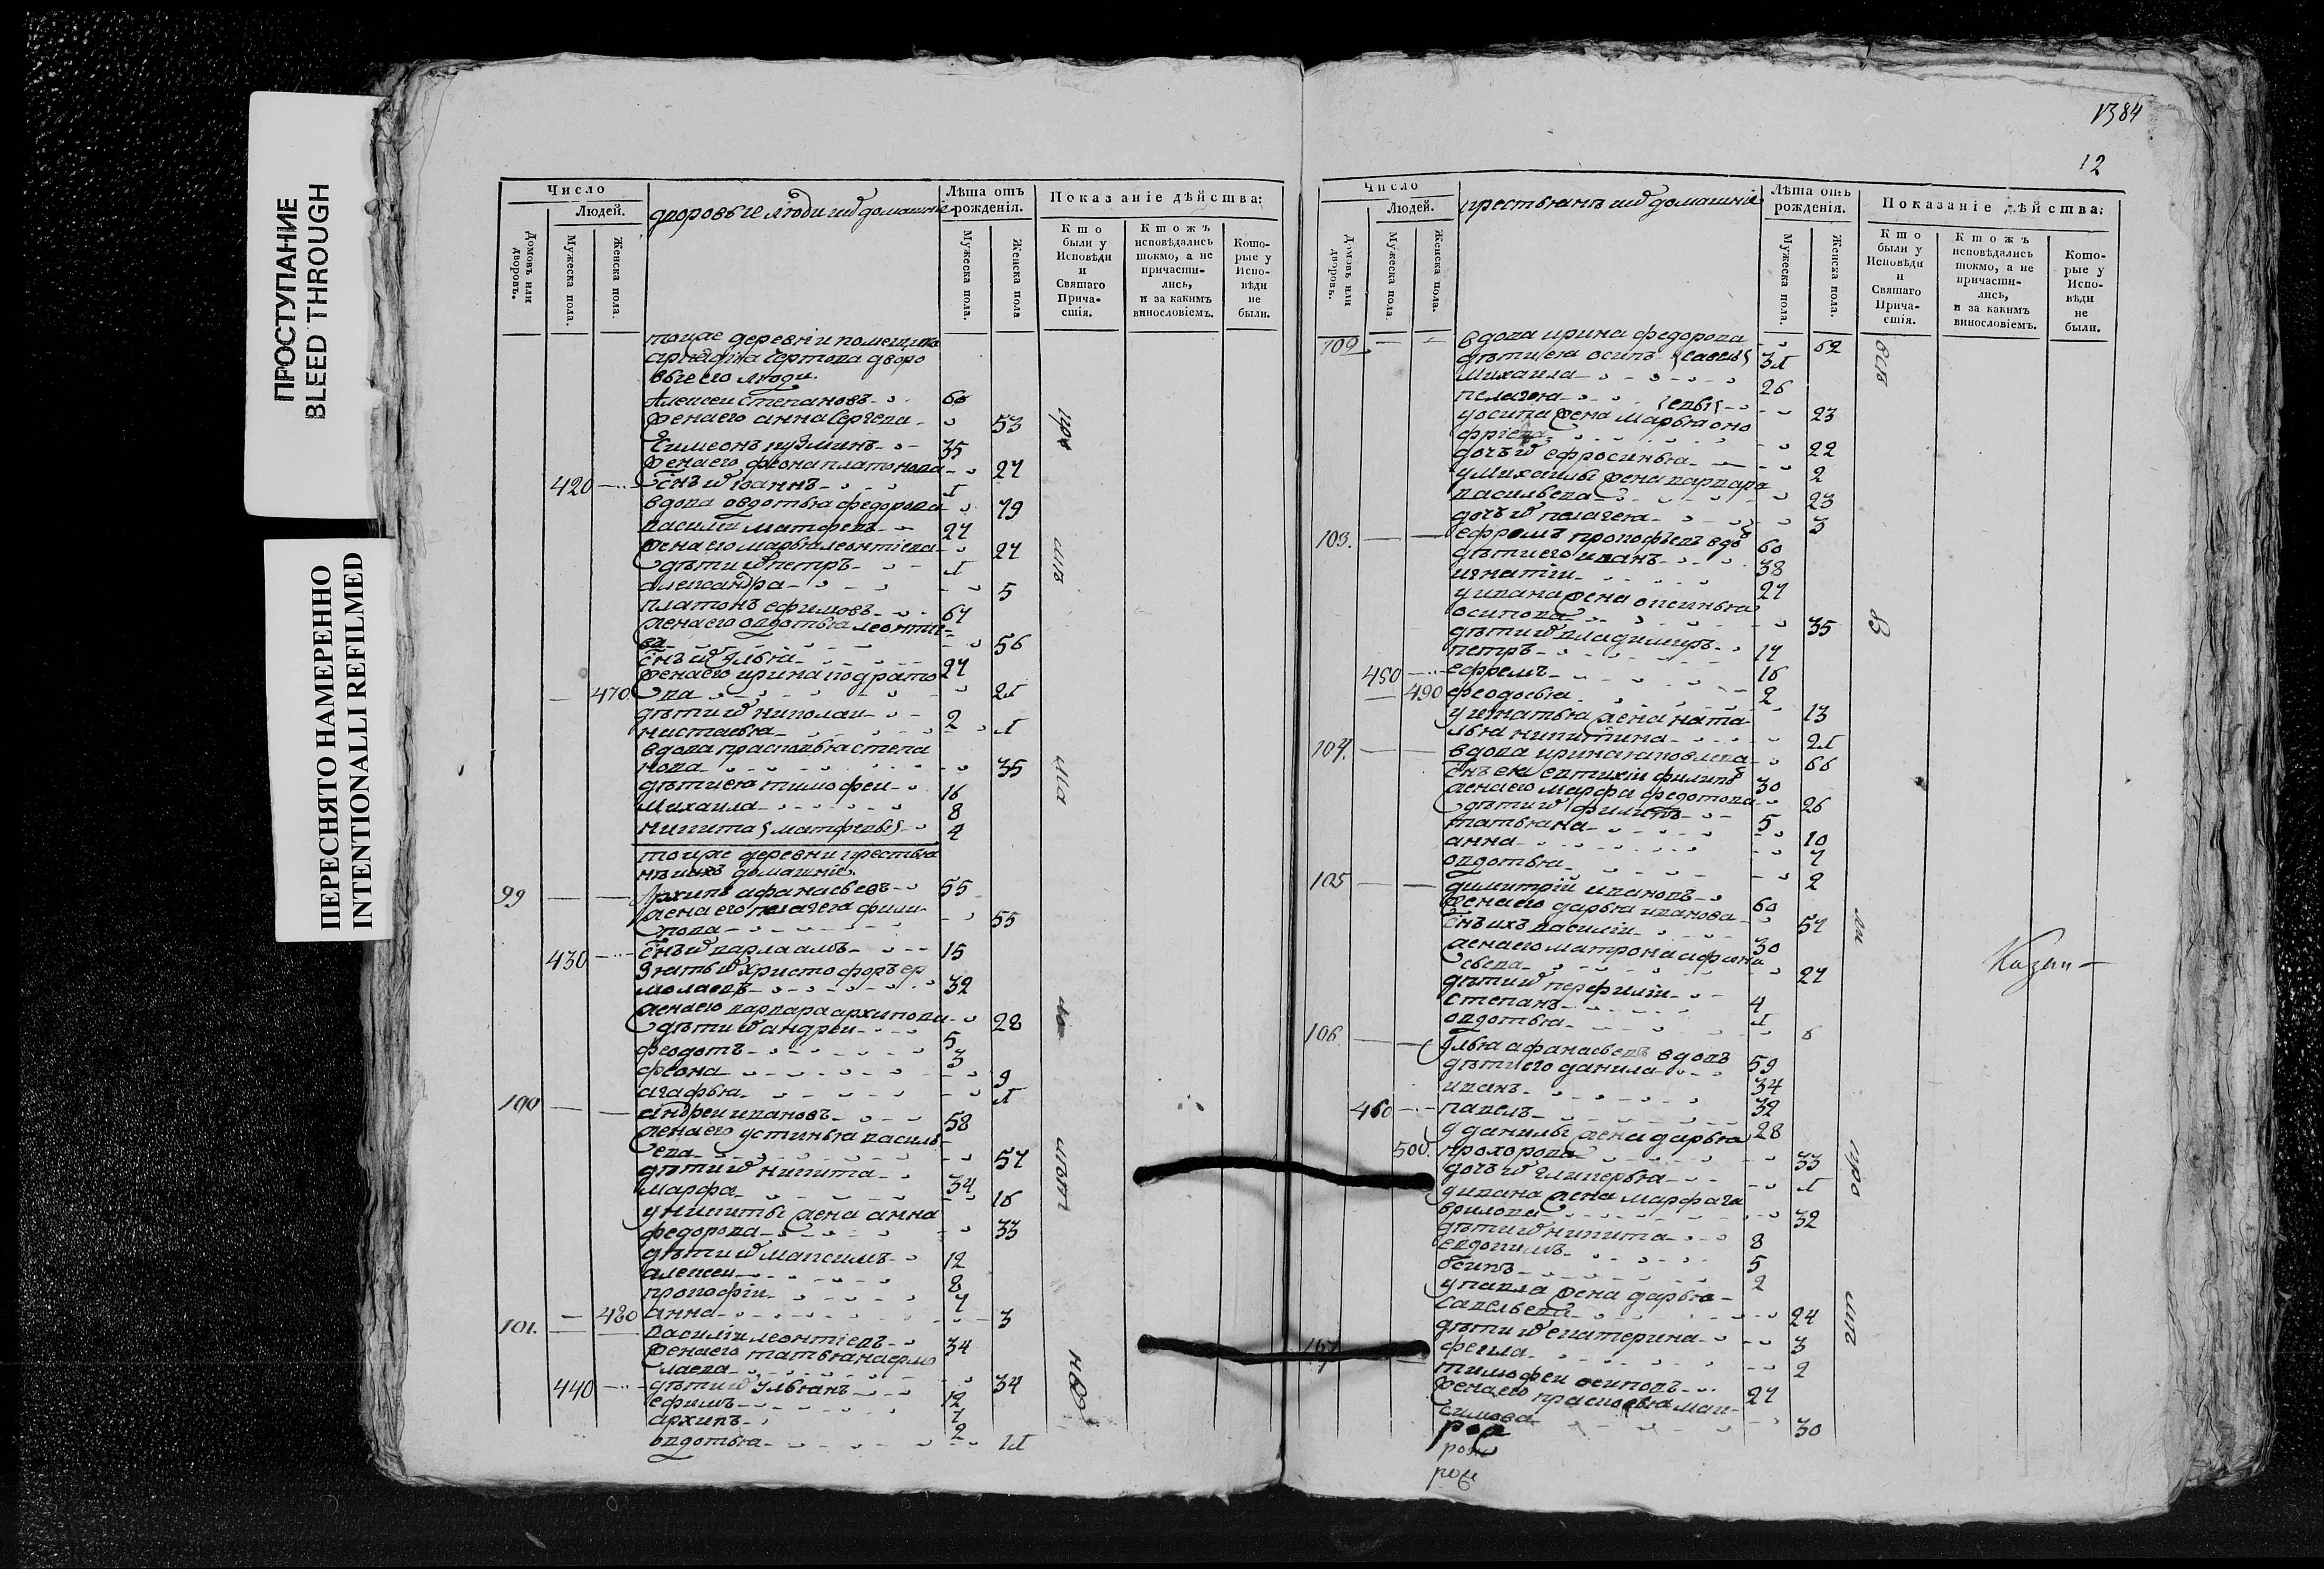 ПРОСТУПАНИЕ
BLEED THROUGH
ПЕРЕСНЯТО НАМЕРЕННО
INTENTIONALLI REFILMED
Число
Людей.
Домовъ или дворовъ.
Мужеска пола.
Женска пола.
дворовые люди
домашніе
Лѣта отъ рожденія.
Мужеска пола.
Женска пола
Показаніе дѣйства:
Кто были у Исповѣди и Святаго Прича-стія.
Ктожъ исповѣдались токмо, а не причасти-лись, и за какимъ винословіемъ.
Кото-рые у Испо-вѣди не были.
тояже деревни помещика
дворо
вые его люди
Алексеи Степановъ 60
жена его анна Сергеева 53
Симеонъ кузминъ 35
жена его феона платонова 27
420 снъ их іоаннъ
вдова овдотья федорова 79
василеи матфеевъ 27
жена его марья леонтіева 27
дѣти их петръ
александра 5
платонъ ефимовъ 67
жена его овдотья леонтие
ва 56
снъ их Илья 27
жена его ирина кодрато
470 ва
дѣти их николаи 2
настасья
вдова прасковья степа
нова 35
дѣти ея тимофеи 16
михаила 8
никита матфеевы 4
тояже деревни крестья
не и ихъ домашніе
99 Архипъ афанасьевъ 55
жена его пелагея фили
пова 55
430 снъ их варлаамъ 15
зять их христофоръ ер
молаевъ 32
жена его варвара архипова 28
дѣти их андреи 5
феодотъ 3
феона 9
агафья
100 андреи ивановъ 58
жена его устинья василь
ева 57
дѣти их никита 34
марфа 16
у никиты жена анна
федорова 33
дѣти их максимъ 12
алексеи 8
прокофіи 7
480 анна 3
101. василіи леонтіевъ 34
жена его татьяна ермо
лаева 34
440 дѣти их ульянъ 12
ефимъ 7
архипъ 2
овдотья
1384
12
Число
Людей.
Домовъ или дворовъ.
Мужеска пола.
Женска пола.
крестьянъ их домашніе
Лѣта отъ рожденія.
Мужеска пола.
Женска пола.
Показаніе дѣйства:
Кто были у Исповѣди и Святаго Прича-стія.
Ктожъ исповѣдались токмо, а не причасти-лись, и за какимъ винословіемъ.
Кото-рые у Испо-вѣди не были.
102 вдова ирина федорова 62
дѣти ея осипъ савелья
михаила 26
пелагея 23
у осипа жена марья оно
фріева 22
дочь их ефросинья 2
у михаилы жена варвара
васильева 23
дочь их пелагея 3
103. ефремъ прокофьевъ вдовъ 60
дѣти его иванъ 38
игнатіи 27
у ивана жена оксинья
осипова 35
дѣти их владимиръ 17
петръ 16
450 ефремъ 2
490 феодосья 13
у игнатья жена ната
лья никитина
104. вдова ирина яковлева 66
снъ ея евтихіи филипъ 30
жена его марфа федотова 26
дѣти их филипъ 5
татьяна 10
анна 7
овдотья 2
105 димитрій ивановъ 60
жена его дарья иванова 57
снъ ихъ василіи 30
жена его матрона афона
сьева 27
дѣти их перфиліи 4
степанъ
овдотья 6
106 Илья афанасьевъ вдовъ 59
дѣти его данила 34
иванъ 32
460 павелъ 28
у данилы жена дарья
500. прохорова 33
дочь их гликерья
у ивана жена марфа га
врилова 32
дѣти их никита 8
евдокимъ 5
осипъ 2
у павла жена дарья
савельева 24
дѣти их екатерина 3
фекла 2
107 тимофеи осиповъ 27
жена его прасковья мак
симова 30
Казан